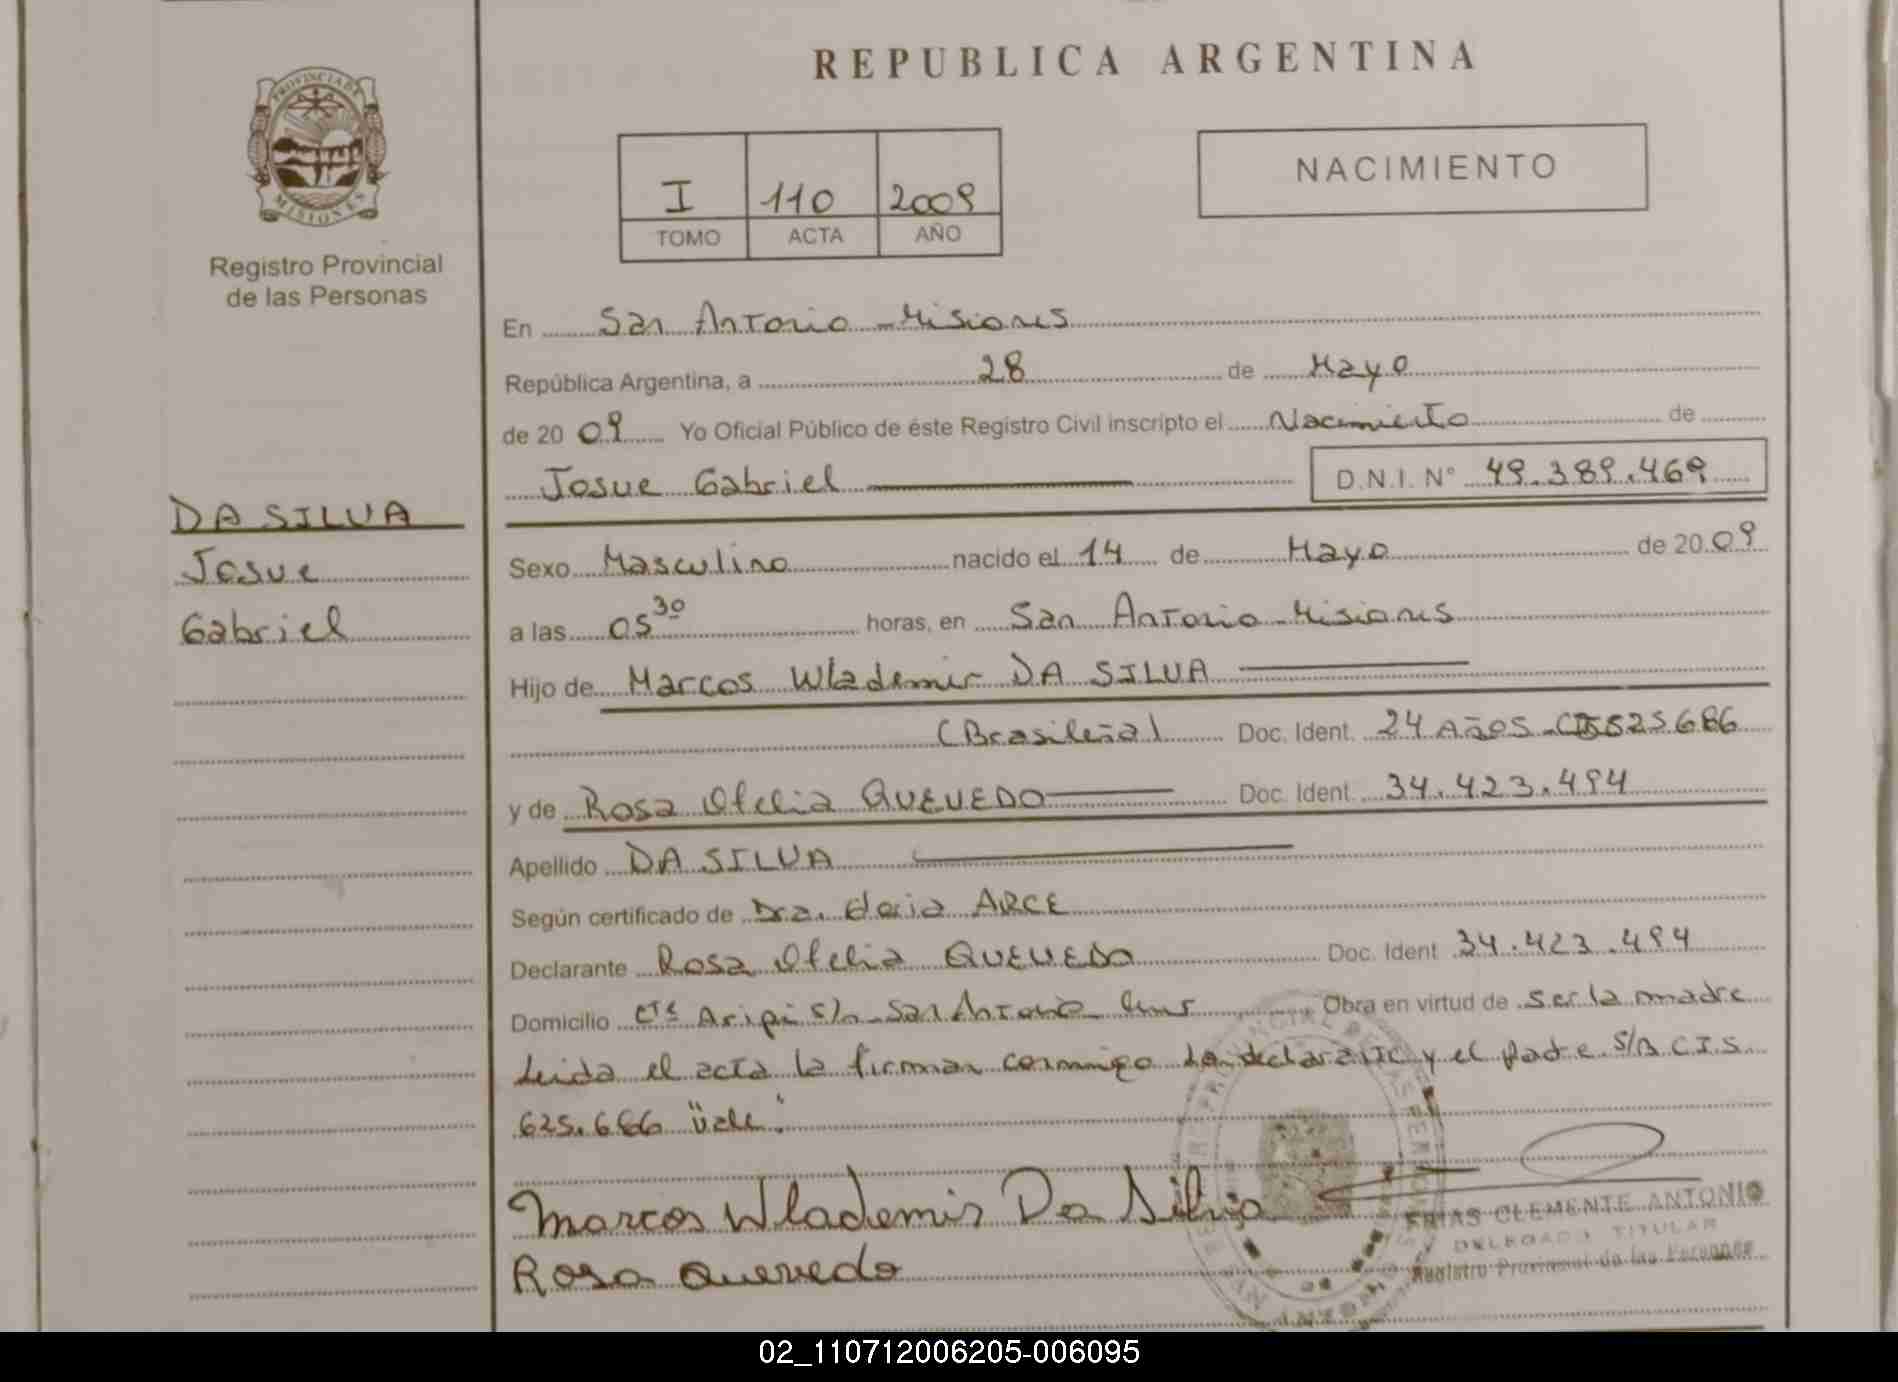 REPUBLICA ARGENTINA
PROVINCIA DE
MISIONES
Registro Provincial
de las Personas
I 110 2009
TOMO ACTA AÑO
NACIMIENTO
En San Antonio - Misiones
República Argentina, a 28 de Mayo
de 20 09 Yo Oficial Público de éste Registro Civil inscripto el Nacimiento de
Josue Gabriel D.N.I. N° 49.389.469
DA SILVA
Josue
Gabriel
Sexo Masculino nacido el 14 de Mayo de 20 09
a las 05 30 horas, en San Antonio - Misiones
Hijo de Marcos Wlademir DA SILVA
(Brasileña) Doc. Ident. 24 Años -
y de Rosa Ofelia QUEVEDO Doc. Ident. 34.423.494
Apellido DA SILVA
Según certificado de Dra. Gloria ARCE
Declarante Rosa Ofelia QUEVEDO Doc. Ident 34.423.494
Domicilio Aripi s/n - San Antonio Obra en virtud de ser la madre
Leida el acta la firman conmigo la declarante y el padre S/A C.I.S.
625.686 "vale".
Marcos Wlademir Da Silva
Rosa Quevedo
FRIAS CLEMENTE ANTONIO
DELEGADO TITULAR
Registro Provincial de las Personas
02_110712006205-006095